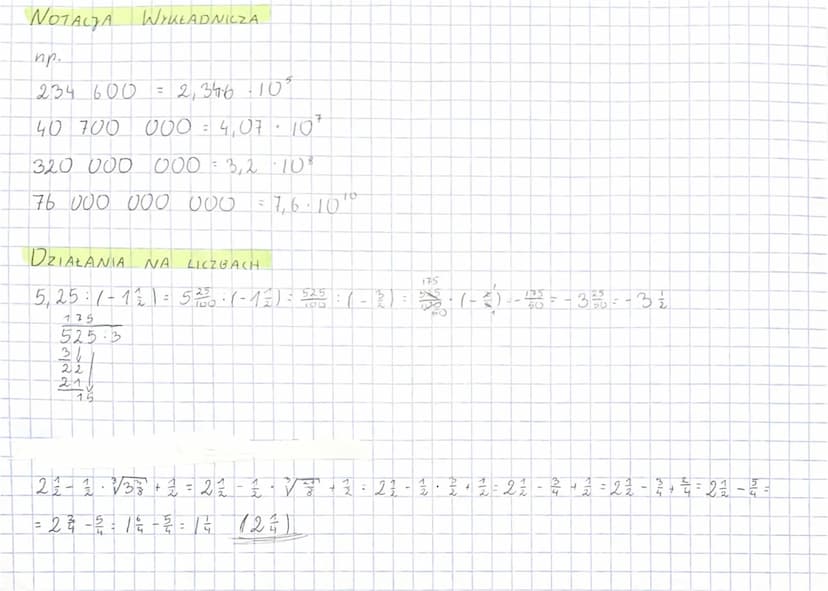 NOTACJA WYKŁADNICZA
np.
234 600 = 2,346 · 10⁵
40 700 000 = 4,07 · 10⁷
320 000 000 = 3,2 · 10⁸
76 000 000 000 = 7,6 · 10¹⁰
DZIAŁANIA NA LICZBACH
5,25 : (-1 1/2) = 5 25/100 · (-1 1/2) = 525/100 : (- 3/2) = 525/100 · (- 2/3) = - 175/50 = -3 25/50 = -3 1/2
175
525 : 3
3
22
21
15
2 1/2 - 1/2 · ∛(3 3/8) + 1/2 = 2 1/2 - 1/2 · ∛(27/8) + 1/2 = 2 1/2 - 1/2 · 3/2 + 1/2 = 2 1/2 - 3/4 + 1/2 = 2 1/2 - 3/4 + 2/4 = 2 1/2 - 5/4 =
= 2 2/4 - 5/4 = 1 6/4 - 5/4 = 1 1/4 (2 1/4)